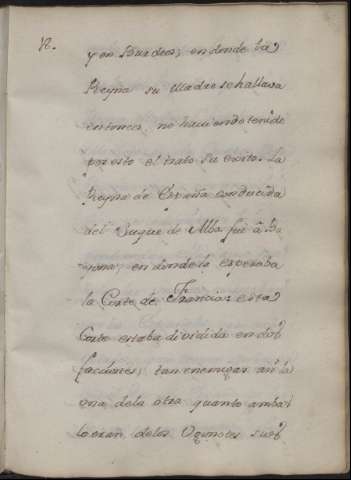 12.
y en Burdeos; en donde la
Reyna su Madre se hallava
entonces, no haviendo tenido
por esto el trato su exito. La
Reyna de España conducida
del Duque de Alba fué â Ba
yona; en donde la esperaba
la Corte de Francia: esta
Corte estaba dividida en dos
facciones, tan enemigas an la
una dela otra quanto ambas
lo eran delos Ugonotes sus